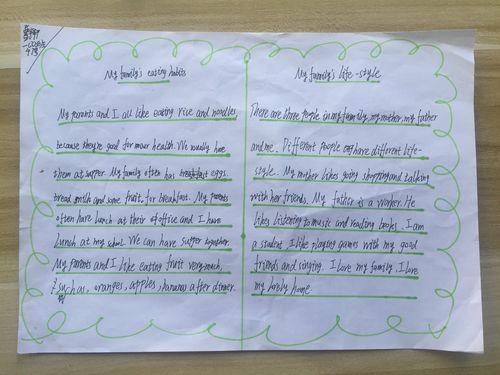 My family's eating habits
My parents and I all like eating rice and noodles,
because they're good for our health. We usually have
them at supper. My family often has eggs.
bread milk and some fruit for breakfast. My parents
often have lunch at their office and I have
lunch at my school. We can have supper together.
My parents and I like eating fruit very much,
such as, oranges, apples, bananas after dinner.
My family's life-style
There are three people in my family, my mother, my father
and me. Different people have different life-
style. My mother likes going shopping and talking
with her friends. My father is a worker. He
likes listening to music and reading books. I am
a student. I like playing games with my good
friends and singing. I love my family. I love
my lovely home.